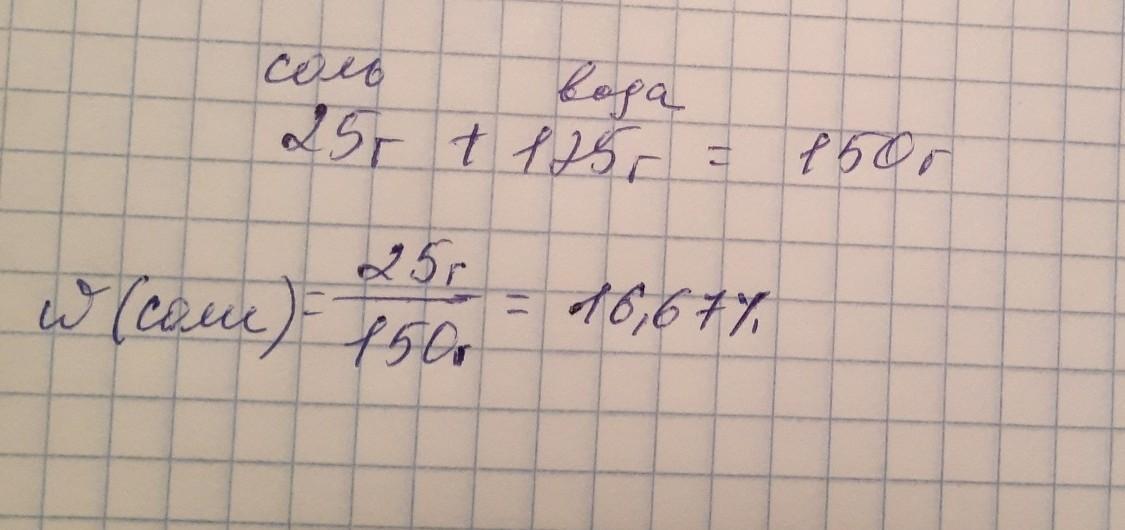 соль вода
25г + 125г = 150г
w(соли) = 25г / 150г = 16,67%.